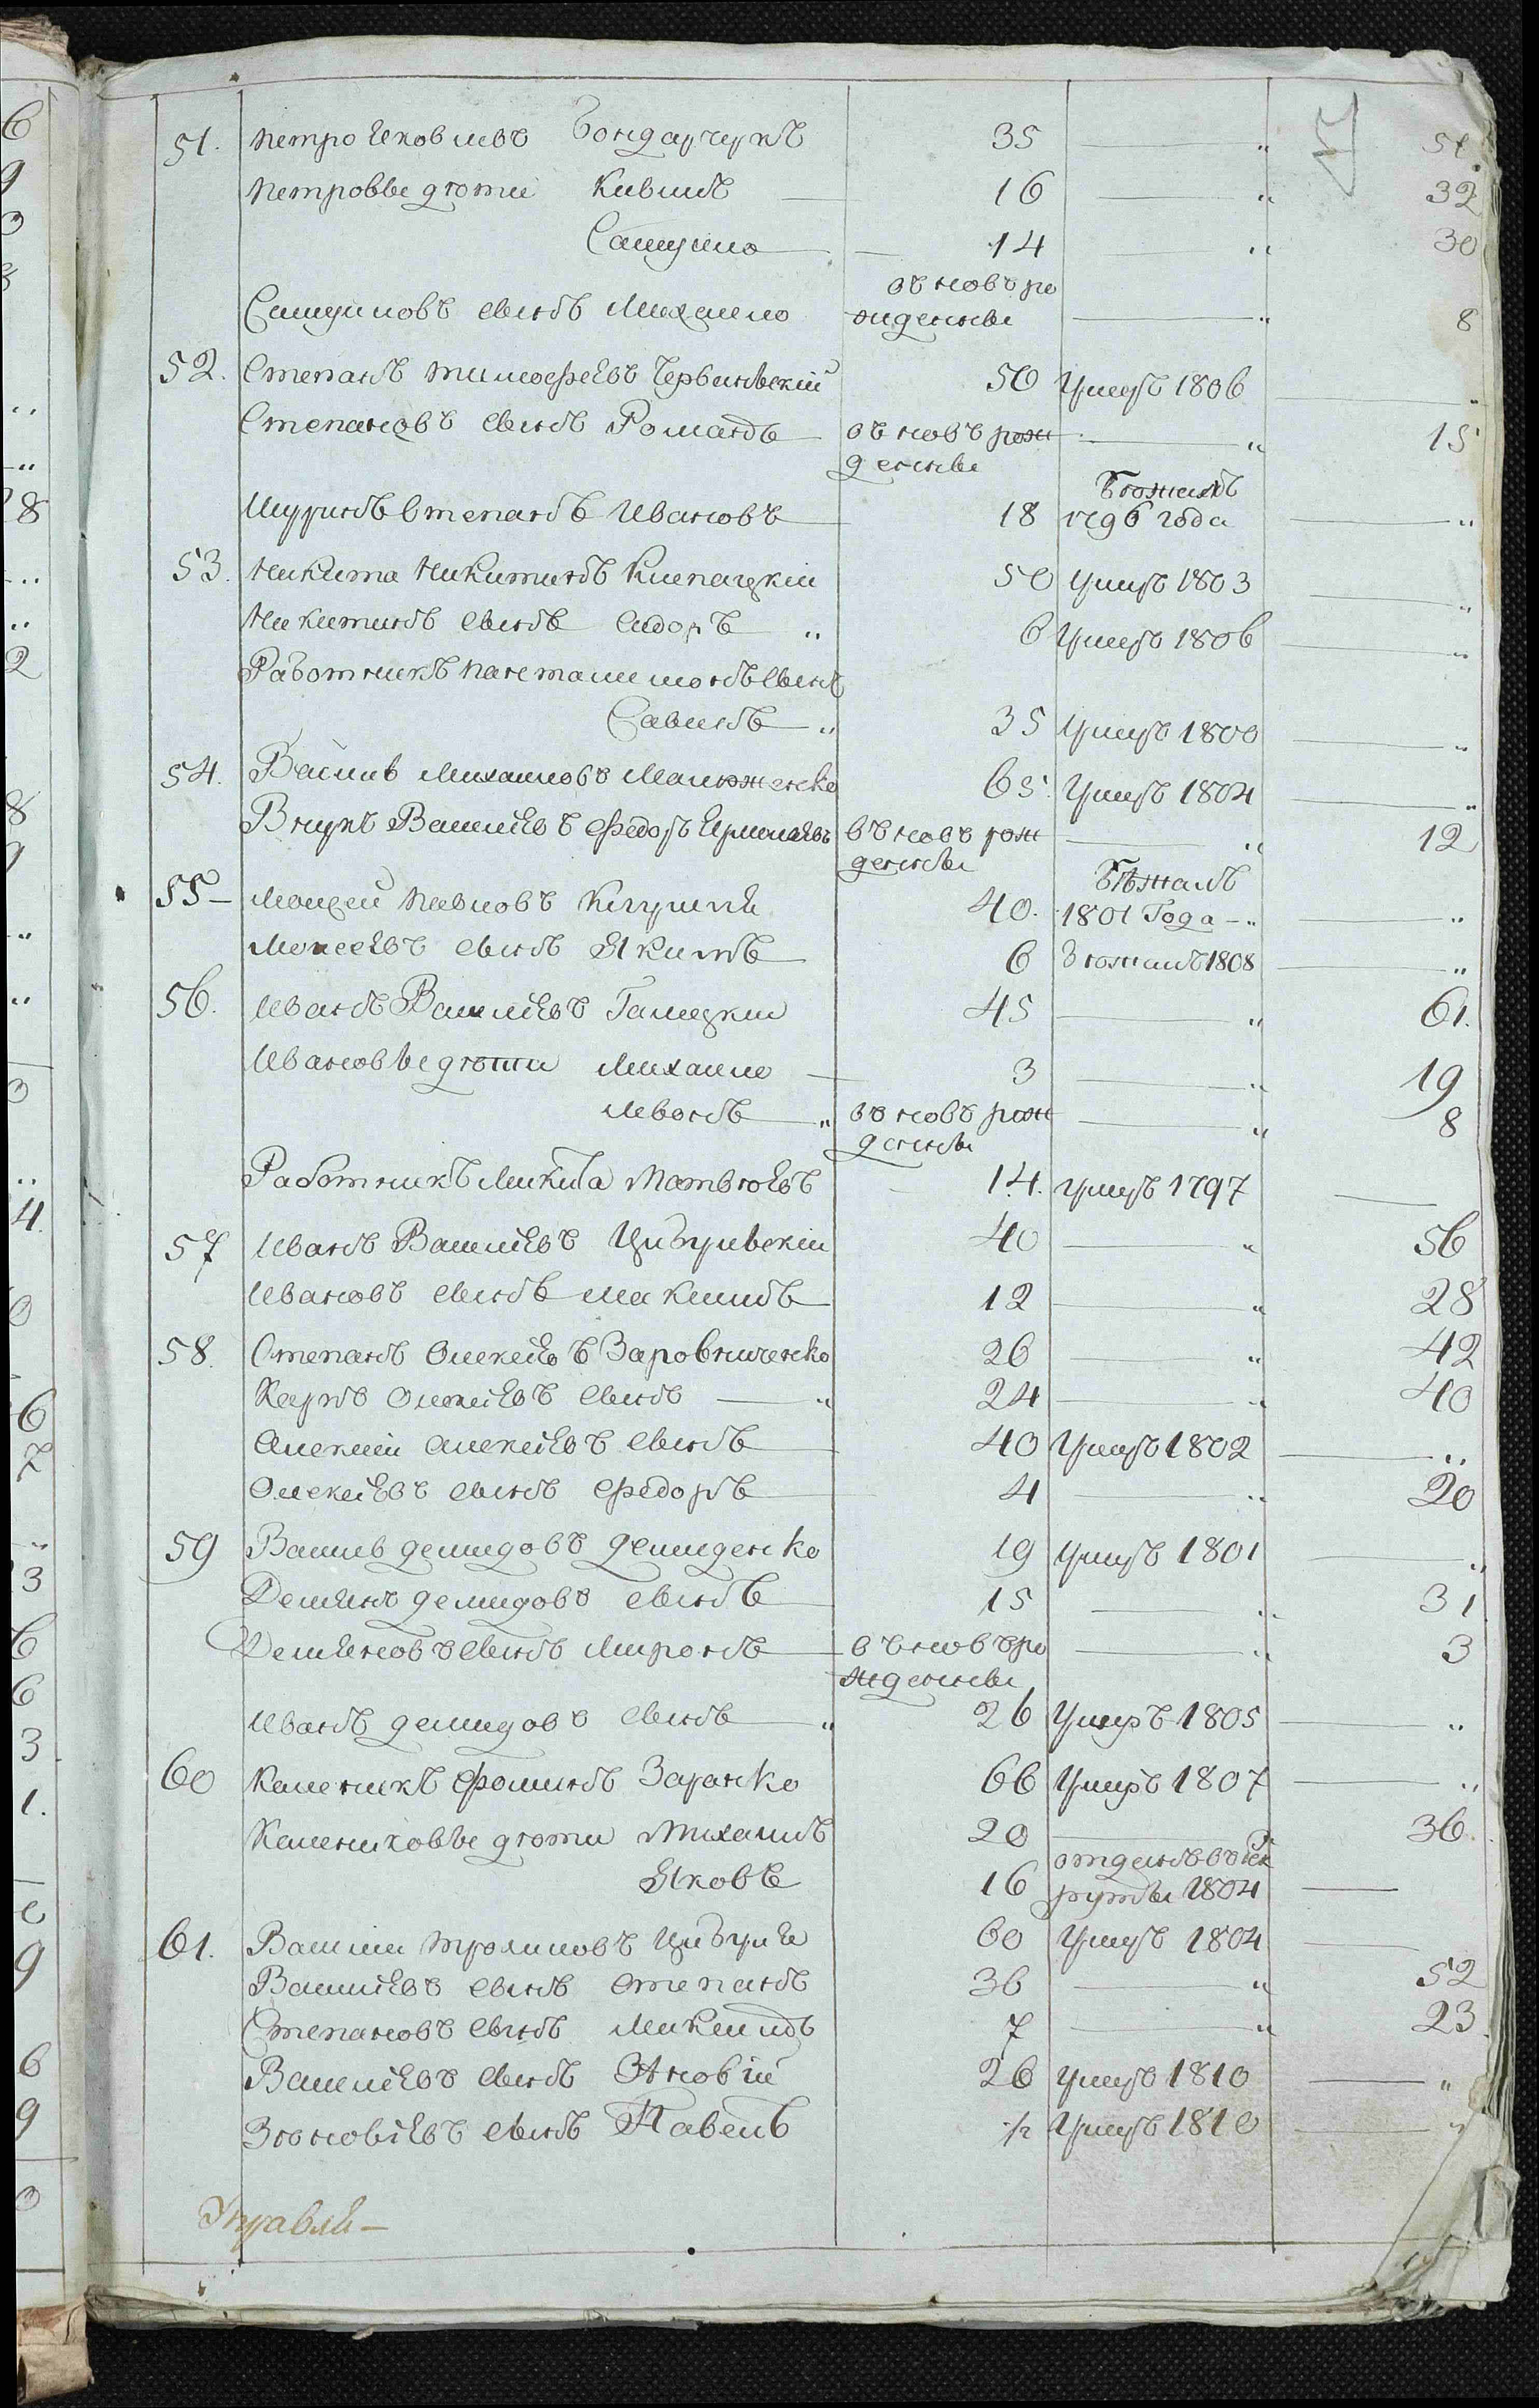 51. Петро Яковлевъ Бондарчукъ 35 — „ 51.
Петровы дѣти Кирилъ — 16 — „ 32
Самуило — 14 — „ 30
въ новъ ро
Самуиловъ сынъ Михаило жденны — „ 8
52. Степанъ Тимофѣевъ Червинский 50 Умеръ 1806 — „
Степановъ сынъ Романъ въ новъ рож — „ 15
денны
Бѣжалъ
Шуринъ Степанъ Ивановъ 18 1796 года — „
53. Никита Никитинъ Клепацкий 50 Умеръ 1803 — „
Никитинъ сынъ Сидоръ „ 6 Умеръ 1806 — „
Работникъ Пантелимонъ сынъ
Савинъ „ 35 Умеръ 1800 — „
54. Василь Михаиловъ Малюженко 65 Умеръ 1804 — „
Внукъ Василиевъ Федоръ Ермолаевъ въ новъ рож — „ 12
денны
Бѣжалъ
55 – Моисей Павловъ 40. 1801 Года – „ — „
Моисеевъ сынъ Якимъ 6 Бѣжалъ 1808 — „
56. Иванъ Василиевъ Галецкий 45 — „ 61.
Ивановы дѣти Михаило — 3 — „ 19
Левонъ „ въ новъ рож — „ 8
денны
Работникъ Микита Матвѣевъ 14. умеръ 1797 —
57 Иванъ Василиевъ Цибулвский 40 — „ 56
Ивановъ сынъ Максимъ 12 — „ 28
58. Степанъ Олексиевъ Заровниченко 26 — „ 42
Карпъ Олексиевъ сынъ — „ 24 — „ 40
Алексий Алексиевъ сынъ 40 Умеръ 1802 — „
Олексиевъ сынъ Федоръ 4 — „ 20
59 Василь Демидовъ Демиденко 19 Умеръ 1801 — „
Демянъ Демидовъ сынъ 15 — „ 31
Демяновъ сынъ Миронъ въ новъ ро — „ 3
жденны
Иванъ Демидовъ сынъ „ 26 Умеръ 1805 — „
60 Каленикъ Фоминъ Заранко 66 Умеръ 1807 — „
Калениковы дѣти Михаилъ 20 — „ 36.
отданъ въ рек
Яковъ 16 руты 1804 —
61. Василий Трохимовъ Цибуля 60 Умеръ 1804 —
Василиевъ сынъ Степанъ 36 — „ 52
Степановъ сынъ Михаилъ 7 — „ 23
Василиевъ сынъ Зѣновий 26 Умеръ 1810 — „
Зѣновиевъ сынъ Павелъ ½ Умеръ 1810 — „
Управля –